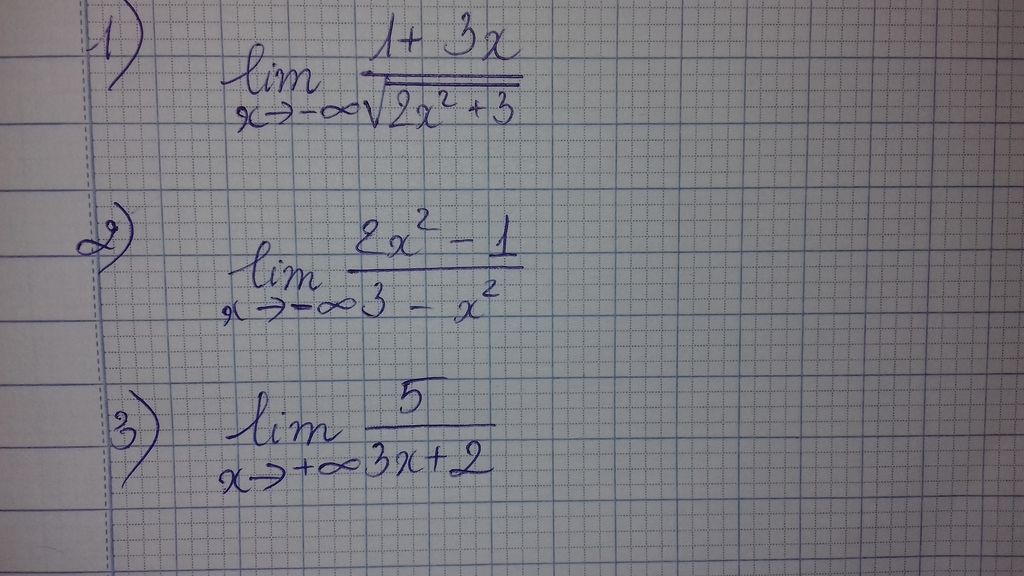 1) lim x→-∞ (1+ 3x)/√(2x² + 3)
2) lim x→-∞ (2x² - 1)/(3 - x²)
3) lim x→+∞ 5/(3x+2)